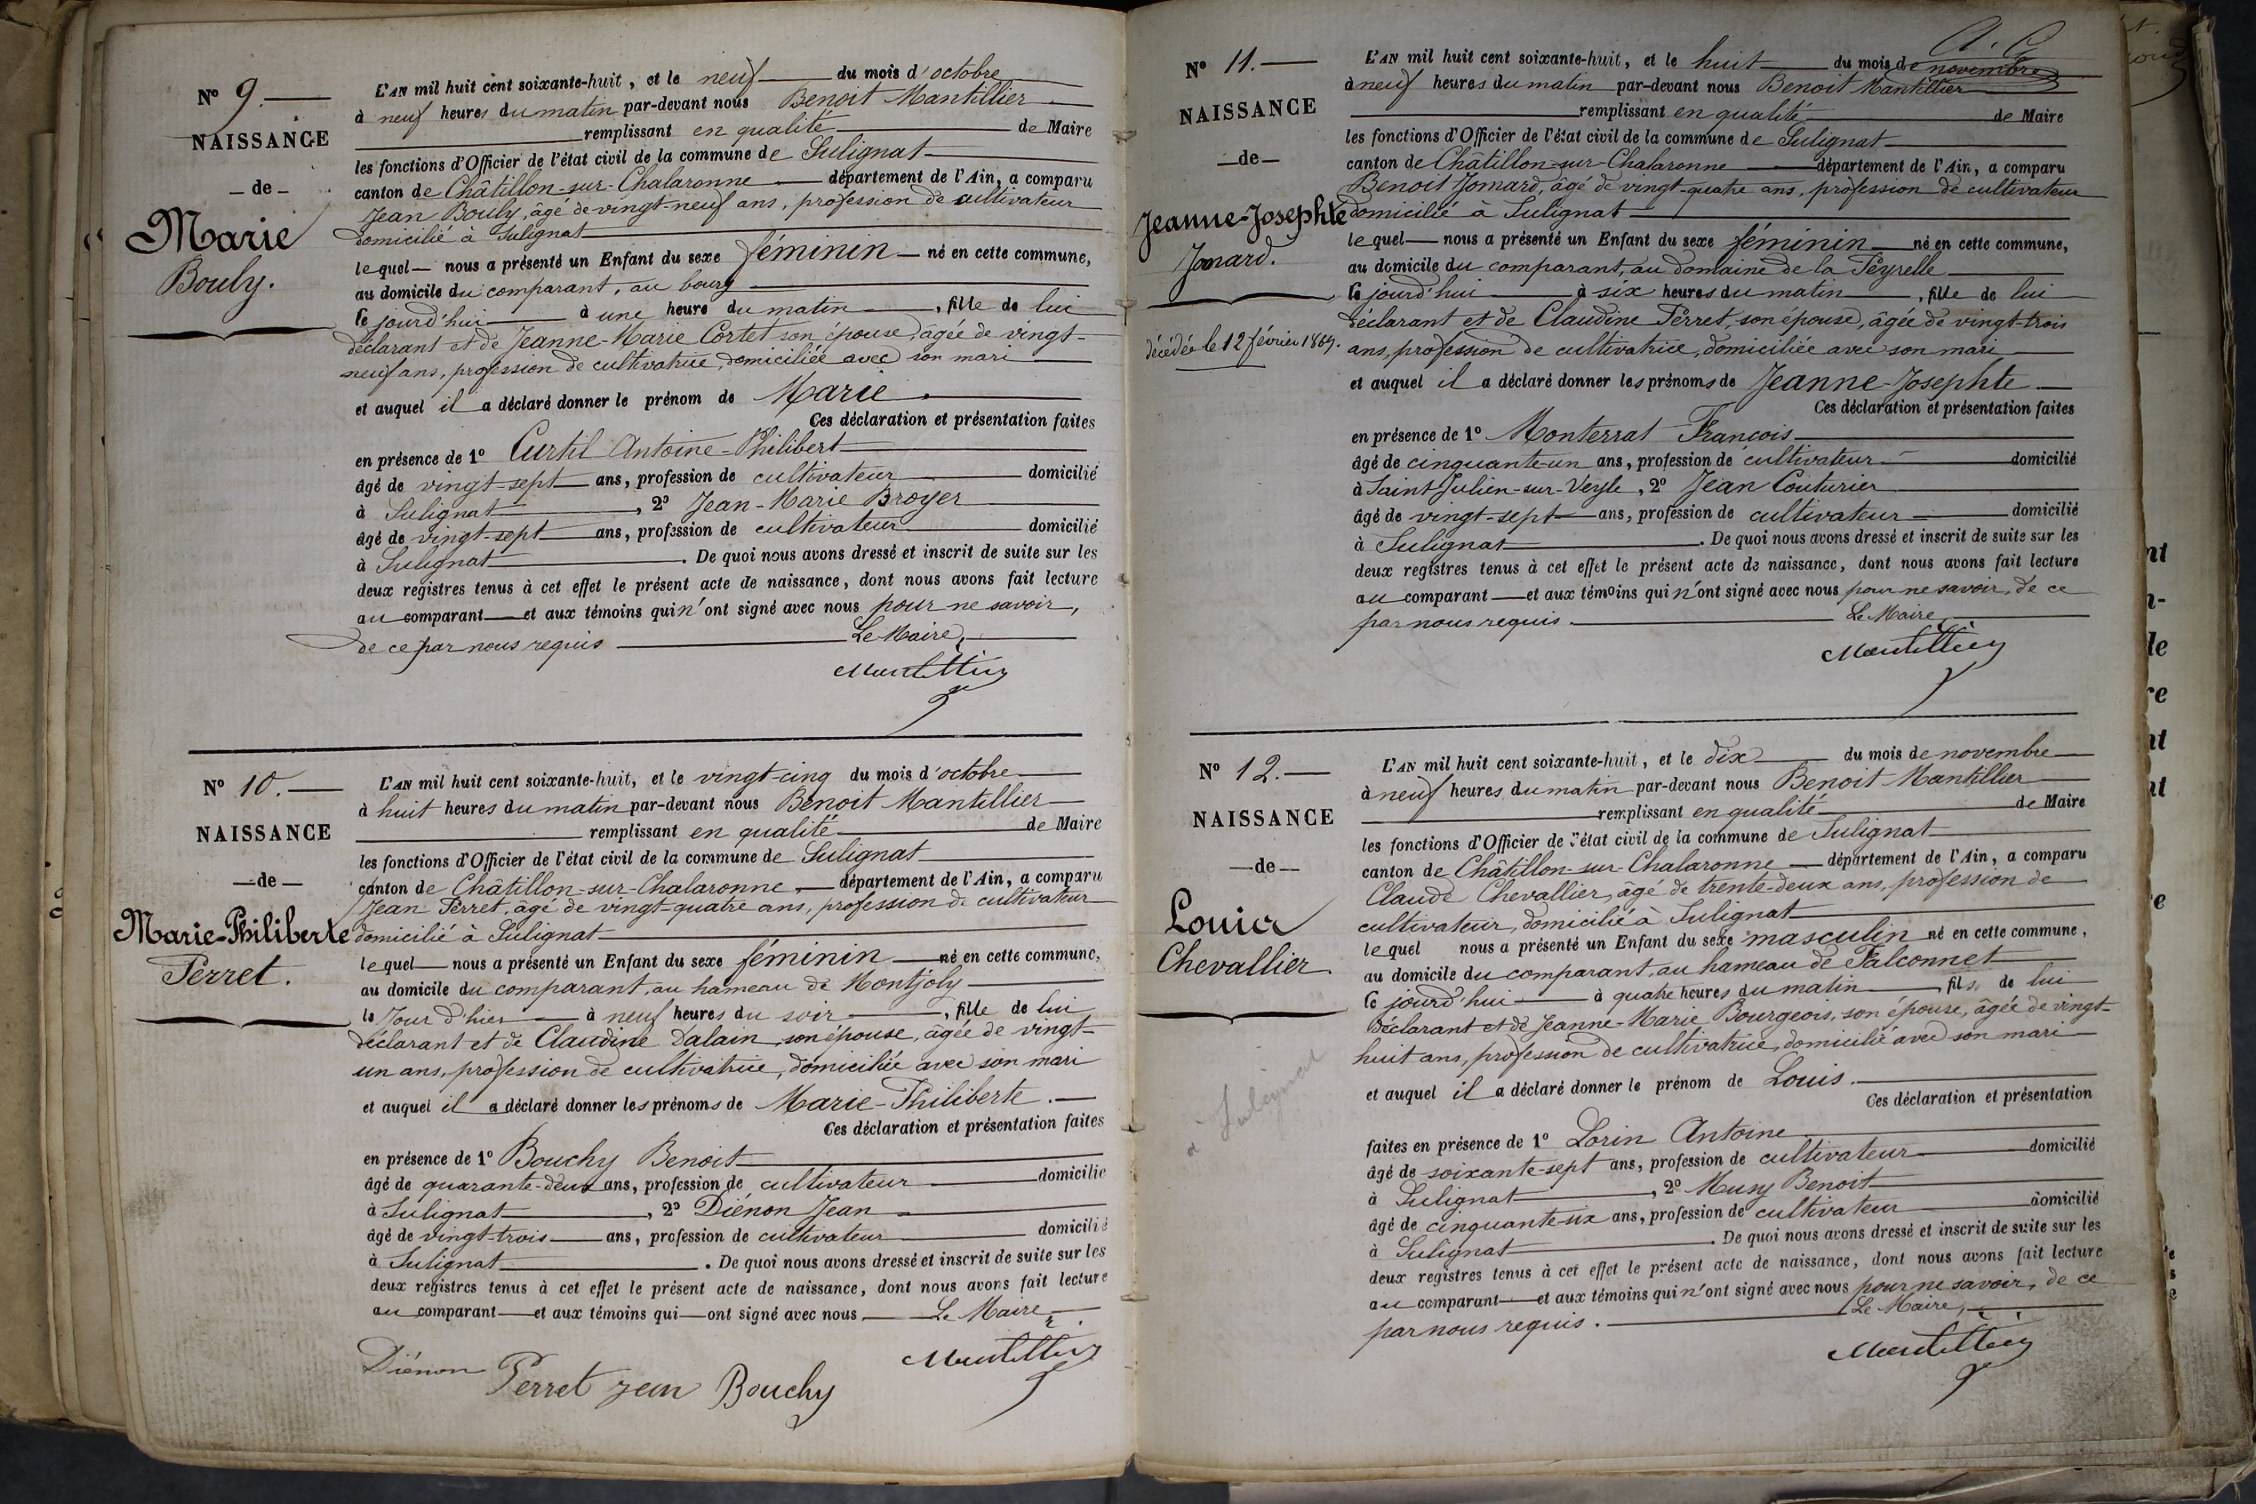 N° 9.
NAISSANCE
de
Marie
Bouly.
L'AN mil huit cent soixante-huit, et le neuf du mois d'octobre
à neuf heures du matin par-devant nous Benoit Mantillier
remplissant en qualité de Maire
les fonctions d'Officier de l'état civil de la commune de Sulignat
canton de Châtillon-sur-Chalaronne département de l'Ain, a comparu
Jean Bouly, âgé de vingt-neuf ans, profession de cultivateur
domicilié à Sulignat
lequel nous a présenté un Enfant du sexe féminin né en cette commune,
au domicile du comparant, au bourg
ce jourd'hui à une heure du matin, fille de lui
déclarant et de Jeanne-Marie Cortet son épouse, âgée de vingt-
neuf ans, profession de cultivatrice, domiciliée avec son mari
et auquel il a déclaré donner le prénom de Marie.
Ces déclaration et présentation faites
en présence de 1° Curtil Antoine-Philibert
âgé de vingt-sept ans, profession de cultivateur domicilié
à Sulignat, 2° Jean-Marie Broyer
âgé de vingt-sept ans, profession de cultivateur domicilié
à Sulignat. De quoi nous avons dressé et inscrit de suite sur les
deux registres tenus à cet effet le présent acte de naissance, dont nous avons fait lecture
au comparant et aux témoins qui n'ont signé avec nous pour ne savoir,
de ce par nous requis Le Maire,
Mantillier
N° 10.
NAISSANCE
de
Marie-Philiberte
Perret.
L'AN mil huit cent soixante-huit, et le vingt-cinq du mois d'octobre
à huit heures du matin par-devant nous Benoit Mantillier
remplissant en qualité de Maire
les fonctions d'Officier de l'état civil de la commune de Sulignat
canton de Châtillon-sur-Chalaronne, département de l'Ain, a comparu
Jean Perret, âgé de vingt-quatre ans, profession de cultivateur
domicilié à Sulignat
lequel nous a présenté un Enfant du sexe féminin né en cette commune,
au domicile du comparant, au hameau de Montjoly
le Jour d'hier à neuf heures du soir, fille de lui
déclarant et de Claudine Dalain, son épouse, âgée de vingt-
un ans, profession de cultivatrice, domiciliée avec son mari
et auquel il a déclaré donner les prénoms de Marie-Philiberte.
Ces déclaration et présentation faites
en présence de 1° Bouchy Benoit
âgé de quarante-deux ans, profession de cultivateur domicilié
à Sulignat, 2° Diénon Jean
âgé de vingt-trois ans, profession de cultivateur domicilié
à Sulignat. De quoi nous avons dressé et inscrit de suite sur les
deux registres tenus à cet effet le présent acte de naissance, dont nous avons fait lecture
au comparant et aux témoins qui ont signé avec nous Le Maire,
Mantillier
Diénon Perret jean Bouchy
N° 11.
NAISSANCE
de
Jeanne-Josephte
Jomard.
décédée le 12 février 1869.
L'AN mil huit cent soixante-huit, et le huit du mois de novembre
à neuf heures du matin par-devant nous Benoit Mantillier
remplissant en qualité de Maire
les fonctions d'Officier de l'état civil de la commune de Sulignat
canton de Châtillon-sur-Chalaronne département de l'Ain, a comparu
Benoit Jomard, âgé de vingt-quatre ans, profession de cultivateur
domicilié à Sulignat
lequel nous a présenté un Enfant du sexe féminin né en cette commune,
au domicile du comparant, au domaine de la Peyrelle
ce jourd'hui à six heures du matin, fille de lui
déclarant et de Claudine Perret, son épouse, âgée de vingt-trois
ans, profession de cultivatrice, domiciliée avec son mari
et auquel il a déclaré donner les prénoms de Jeanne-Josephte
Ces déclaration et présentation faites
en présence de 1° Monterrat François
âgé de cinquante-un ans, profession de cultivateur domicilié
à Saint Julien-sur-Veyle, 2° Jean Couturier
âgé de vingt-sept ans, profession de cultivateur domicilié
à Sulignat. De quoi nous avons dressé et inscrit de suite sur les
deux registres tenus à cet effet le présent acte de naissance, dont nous avons fait lecture
au comparant et aux témoins qui n'ont signé avec nous pour ne savoir, de ce
par nous requis. Le Maire,
Mantillier
N° 12.
NAISSANCE
de
Louis
Chevallier.
à Sulignat
L'AN mil huit cent soixante-huit, et le dix du mois de novembre
à neuf heures du matin par-devant nous Benoit Mantillier
remplissant en qualité de Maire
les fonctions d'Officier de l'état civil de la commune de Sulignat
canton de Châtillon-sur-Chalaronne département de l'Ain, a comparu
Claude Chevallier, âgé de trente-deux ans, profession de
cultivateur, domicilié à Sulignat
lequel nous a présenté un Enfant du sexe masculin né en cette commune,
au domicile du comparant, au hameau de Falconnet
ce jourd'hui à quatre heures du matin, fils de lui
déclarant et de Jeanne-Marie Bourgeois, son épouse, âgée de vingt-
huit ans, profession de cultivatrice, domicilié avec son mari
et auquel il a déclaré donner le prénom de Louis.
Ces déclaration et présentation
faites en présence de 1° Lorin Antoine
âgé de soixante-sept ans, profession de cultivateur domicilié
à Sulignat, 2° Musy Benoit
âgé de cinquante-six ans, profession de cultivateur domicilié
à Sulignat. De quoi nous avons dressé et inscrit de suite sur les
deux registres tenus à cet effet le présent acte de naissance, dont nous avons fait lecture
au comparant et aux témoins qui n'ont signé avec nous pour ne savoir, de ce
par nous requis. Le Maire,
Mantillier